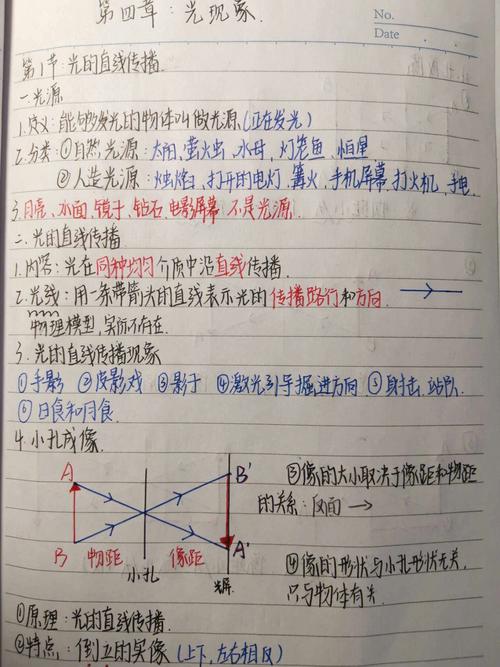 第四章：光现象.
No.
Date
第1节：光的直线传播.
一.光源
1.定义：能够发光的物体叫做光源(正在发光)
2.分类：①自然光源：太阳、萤火虫、水母、灯笼鱼、恒星
②人造光源：烛焰、打开的电灯、篝火、手机屏幕、打火机、手电
3.月亮、水面、镜子、钻石、电影屏幕不是光源.
二.光的直线传播
1.内容：光在同种均匀介质中沿直线传播.
2.光线：用一条带箭头的直线表示光的传播路径和方向.
物理模型,实际不存在.
3.光的直线传播现象
①手影 ②皮影戏 ③影子 ④激光引导掘进方向 ⑤射击、站队
⑥日食和月食.
4.小孔成像.
A
B
物距
小孔
像距
B'
A'
光屏
③像的大小取决于像距和物距
的关系：反面 →
④像的形状与小孔形状无关,
只与物体有关.
①原理：光的直线传播.
②特点：倒立的实像(上下,左右相反)